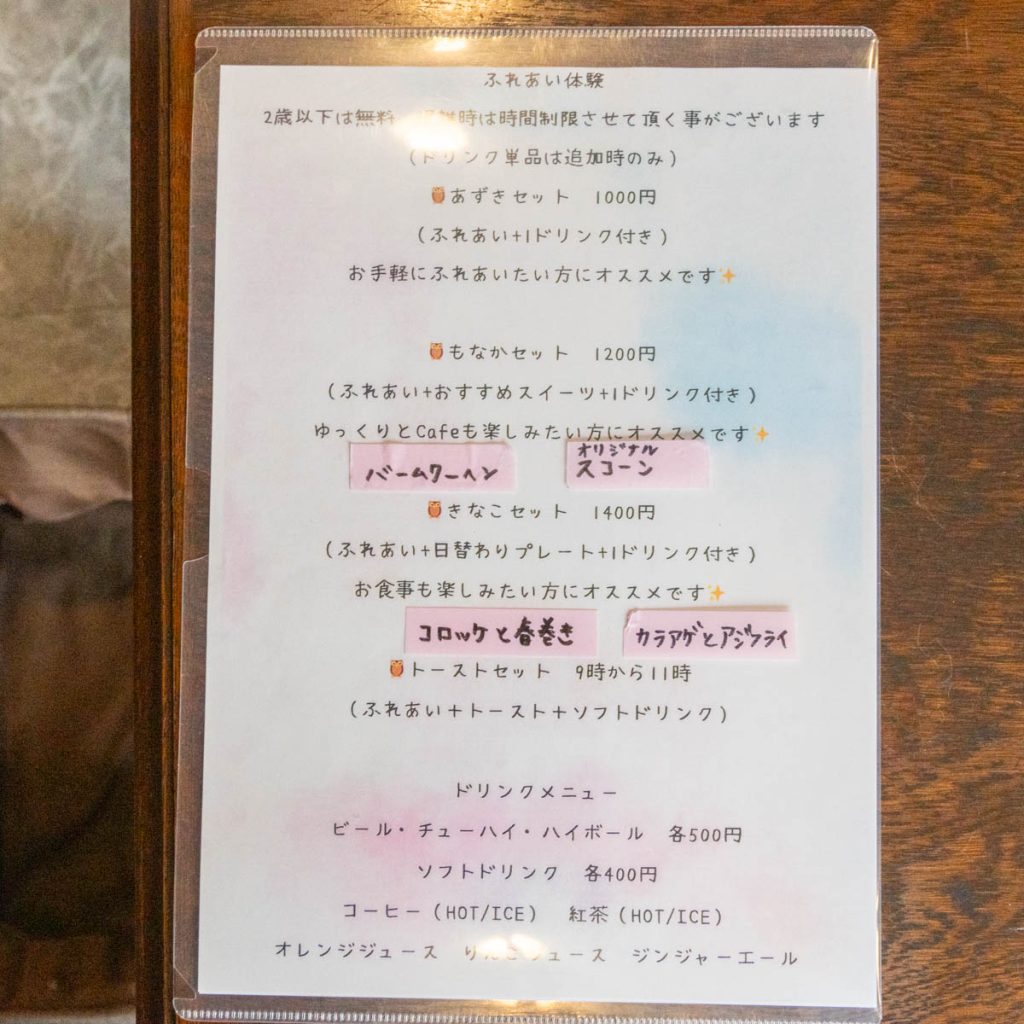 ふれあい体験
2歳以下は無料 時は時間制限させて頂く事がございます
(ドリンク単品は追加時のみ)
🦉あずきセット 1000円
(ふれあい+1ドリンク付き)
お手軽にふれあいたい方にオススメです✨
🦉もなかセット 1200円
(ふれあい+おすすめスイーツ+1ドリンク付き)
ゆっくりとCafeも楽しみたい方にオススメです✨
バームクーヘン オリジナルスコーン
🦉きなこセット 1400円
(ふれあい+日替わりプレート+1ドリンク付き)
お食事も楽しみたい方にオススメです✨
コロッケと春巻き カラアゲとアジフライ
🦉トーストセット 9時から11時
(ふれあい+トースト+ソフトドリンク)
ドリンクメニュー
ビール・チューハイ・ハイボール 各500円
ソフトドリンク 各400円
コーヒー(HOT/ICE) 紅茶(HOT/ICE)
オレンジジュース りんごジュース ジンジャーエール